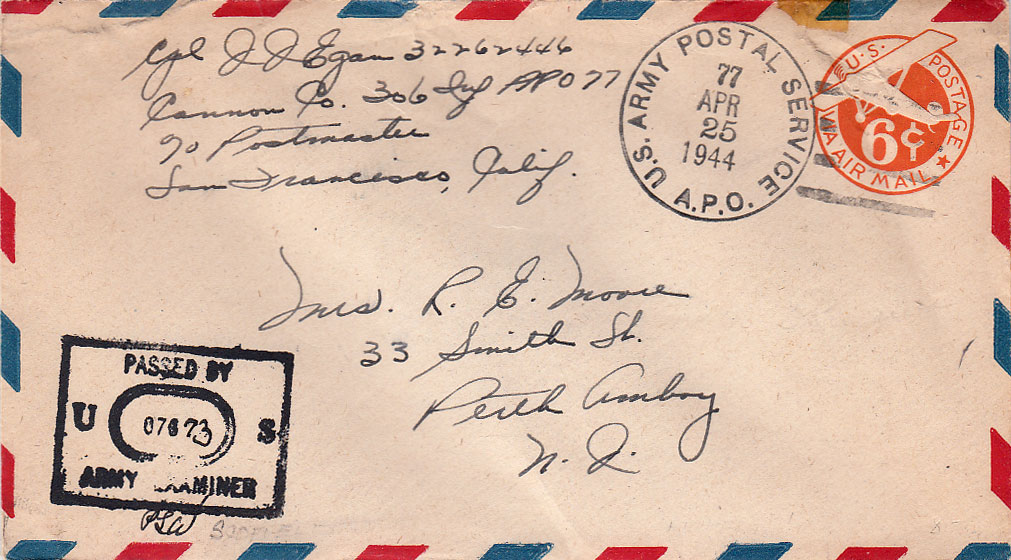 Cpl J J Egan 32262446
Cannon Co. 306 Inf APO 77
c/o Postmaster
San Francisco, Calif.
U.S. ARMY POSTAL SERVICE
77
APR
25
1944
A.P.O.
U.S. POSTAGE
6¢
VIA AIR MAIL
Mrs. R. E. Moore
33 Smith St.
Perth Amboy
N. J.
PASSED BY
U 07673 S
ARMY EXAMINER